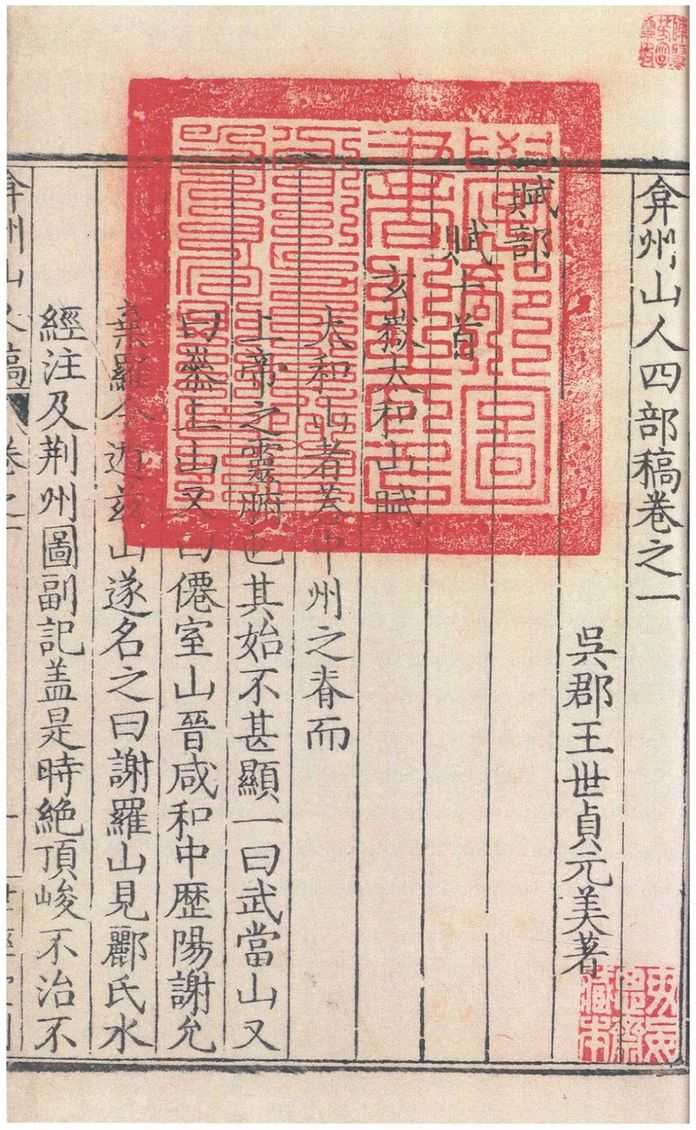 弇州山人四部稿卷之一
吳郡王世貞元美著
賦部
賦十首
玄嶽太和山賦
太和山者盖中州之脊而
上帝之靈腑也其始不甚顯一曰武當山又
曰嵾上山又曰僊室山晉咸和中歷陽謝允
棄羅令遯兹山遂名之曰謝羅山見酈氏水
經注及荆州圖副記盖是時絶頂峻不治不
弇州山人稿 卷之一 一 世經堂刊